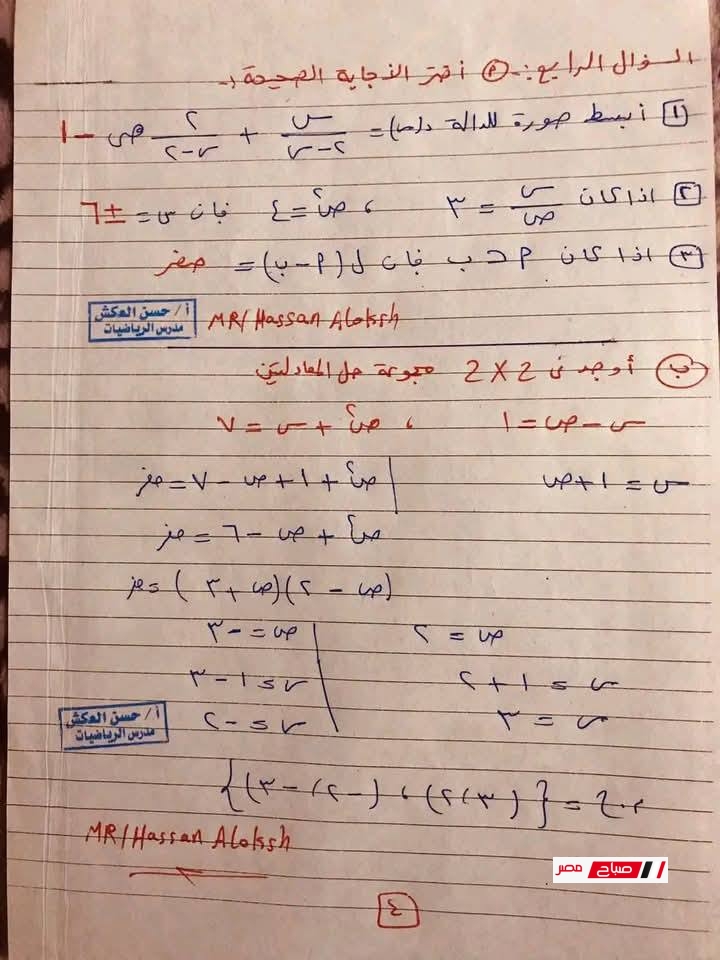 السؤال الرابع:- (٢) أختر الأجابة الصحيحة:-
[١] أبسط صورة للدالة د(س) = س/(٢-س) + ٢/(س-٢) هى -١
[٢] اذا كان س/ص = ٣ ، ص² = ٤ فان س = ±٦
[٣] اذا كان P ⊂ ب فان ل(P - ب) = صفر
أ/ حسن العكش
مدرس الرياضيات
MR/Hassan Aloksh
(ب) أوجد فى 2 X 2 مجموعة حل المعادلتين
س - ص = ١ ، ص² + س = ٧
س = ١ + ص | ص² + ١ + ص - ٧ = صفر
ص² + ص - ٦ = صفر
(ص - ٢)(ص + ٣) = صفر
ص = ٢ | ص = -٣
س = ١ + ٢ | س = ١ - ٣
س = ٣ | س = -٢
أ/ حسن العكش
مدرس الرياضيات
م.ح = {(٣، ٢) ، (-٢، -٣)}
MR/Hassan Aloksh
صباح مصر
[٤]